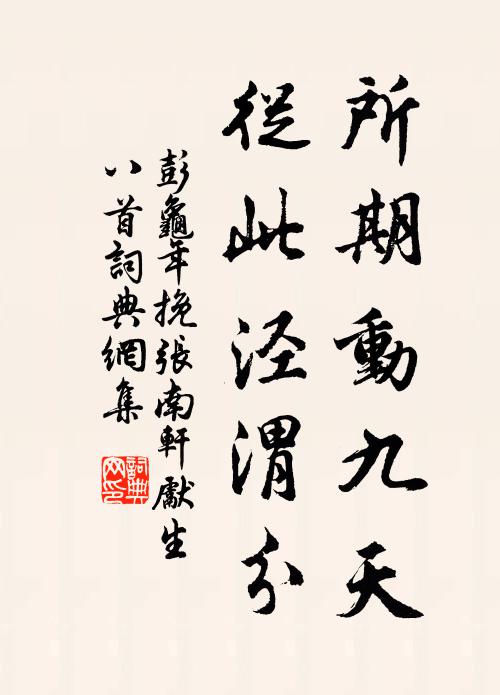 所期動九天
從此涇渭分
彭龜年挽張南軒獻生
八首詞典網集
詞典網印